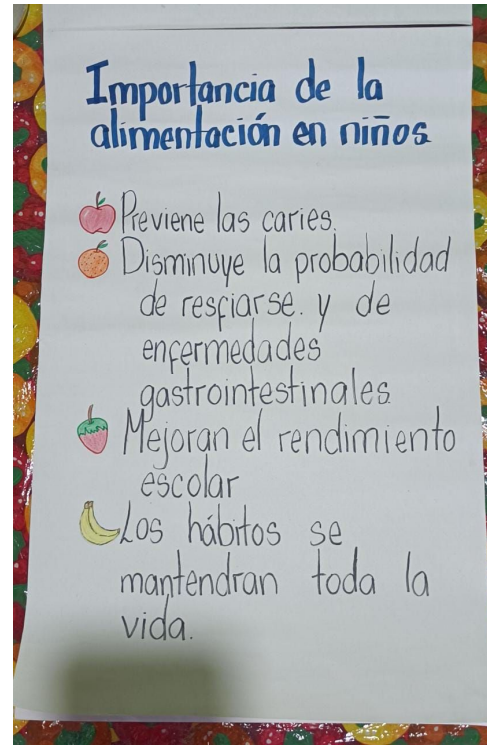 Importancia de la
alimentación en niños
Previene las caries.
Disminuye la probabilidad
de resfiarse. y de
enfermedades
gastrointestinales.
Mejoran el rendimiento
escolar
Los hábitos se
mantendran toda la
vida.